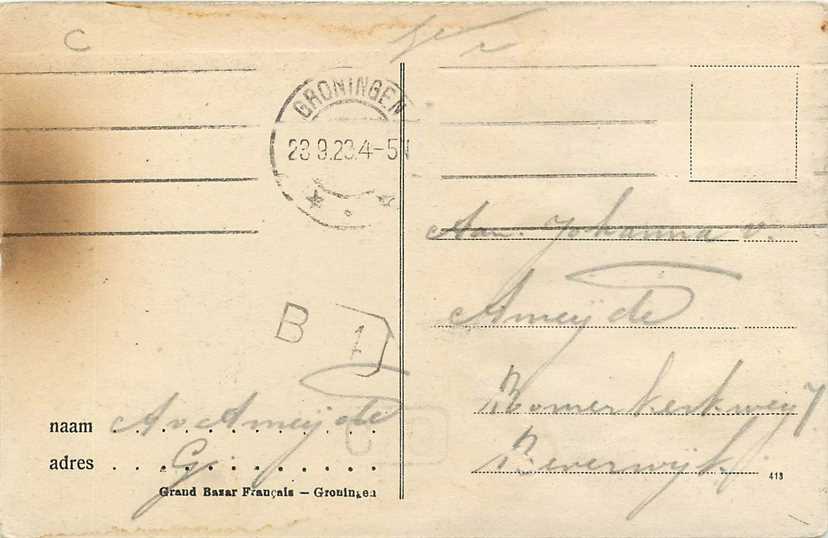 C
GRONINGEN
23.9.23.4-5N
Aan. Johanna v.
Ameijde
B 1
Romerkerkweg 7
naam Av Ameijde
Beverwijk
adres G.
Grand Bazar Français — Groningen
413